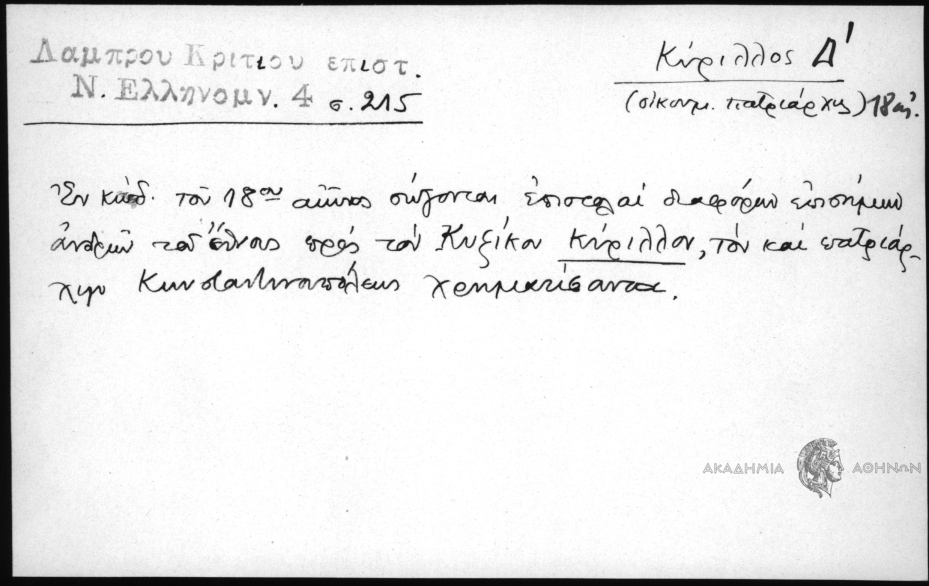 Λαμπρου Κριτιου επιστ.
Ν. Ελληνομν. 4 σ. 215
Κύριλλος Δ'
(οἰκουμ. πατριάρχης) 18 αἰ.
Ἐν κώδ. τοῦ 18ου αἰῶνος σώζονται ἐπιστολαὶ διαφόρων ἐπισήμων
ἀνδρῶν τοῦ ἔθνους πρὸς τὸν Κυζίκου Κύριλλον, τὸν καὶ πατριάρ-
χην Κωνσταντινουπόλεως χρηματίσαντα.
ΑΚΑΔΗΜΙΑ ΑΘΗΝΩΝ